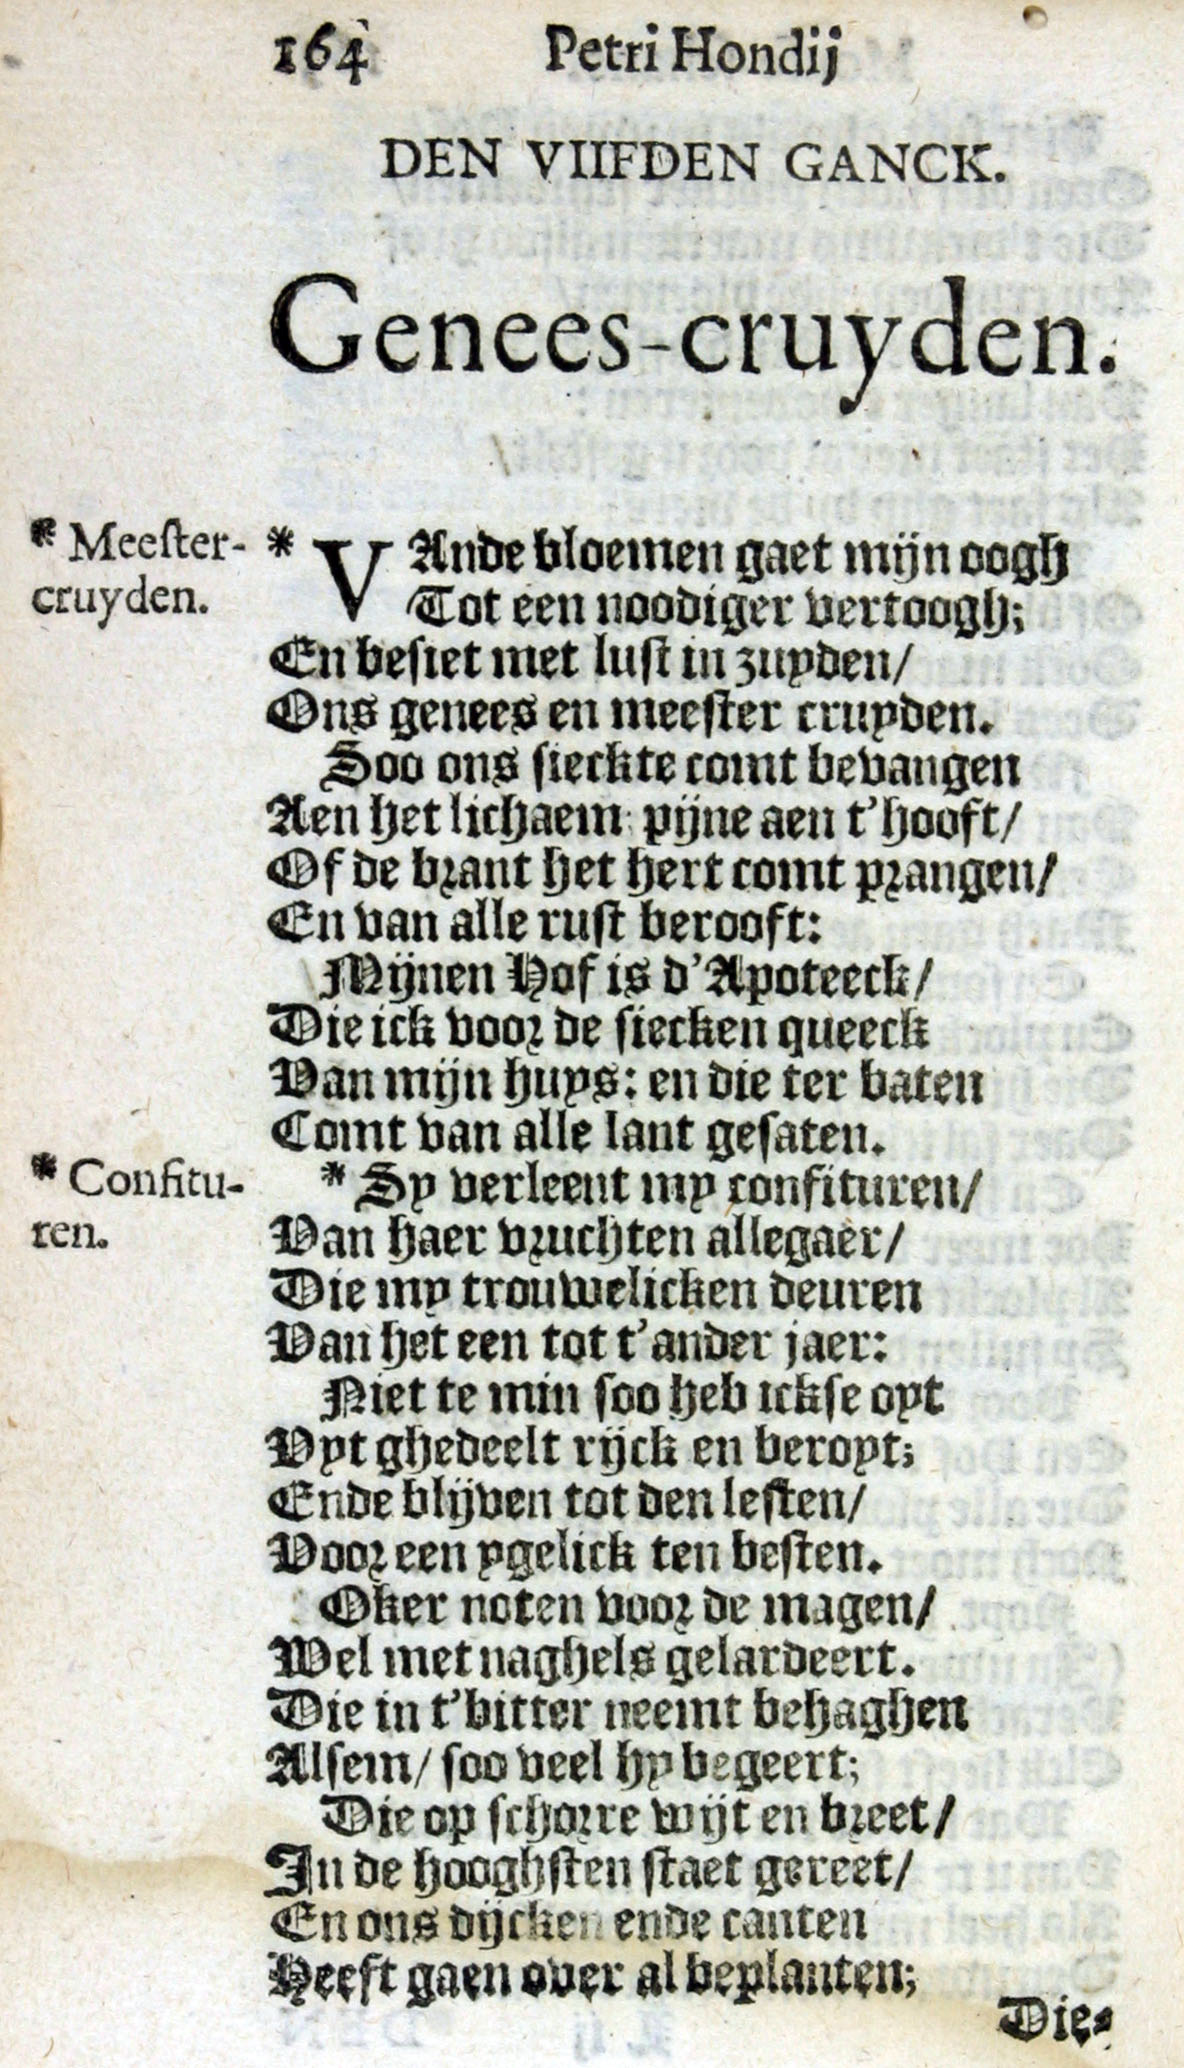 164 Petri Hondij
DEN VIIFDEN GANCK.
Genees-cruyden.
* Meester-
cruyden.
* VAnde bloemen gaet mijn oogh
Tot een noodiger vertoogh;
En besiet met lust in zuyden/
Ons genees en meester cruyden.
Soo ons sieckte comt bevangen
Aen het lichaem: pijne aen t'hooft/
Of de brant het hert comt prangen/
En van alle rust berooft:
Mijnen Hof is d'Apoteeck/
Die ick voor de siecken queeck
Van mijn huys: en die ter baten
Comt van alle lant gesaten.
* Confitu-
ren.
* Sy verleent my confituren/
Van haer vruchten allegaer/
Die my trouwelicken deuren
Van het een tot t'ander jaer:
Niet te min soo heb ickse oyt
Vyt ghedeelt rijck en beroyt;
Ende blijven tot den lesten/
Voor een ygelick ten besten.
Oker noten voor de magen/
Wel met naghels gelardeert.
Die in t'bitter neemt behaghen
Alsem/ soo veel hy begeert;
Die op schorre wijt en breet/
In de hooghsten staet gereet/
En ons dijcken ende canten
Heeft gaen over al beplanten;
Die-